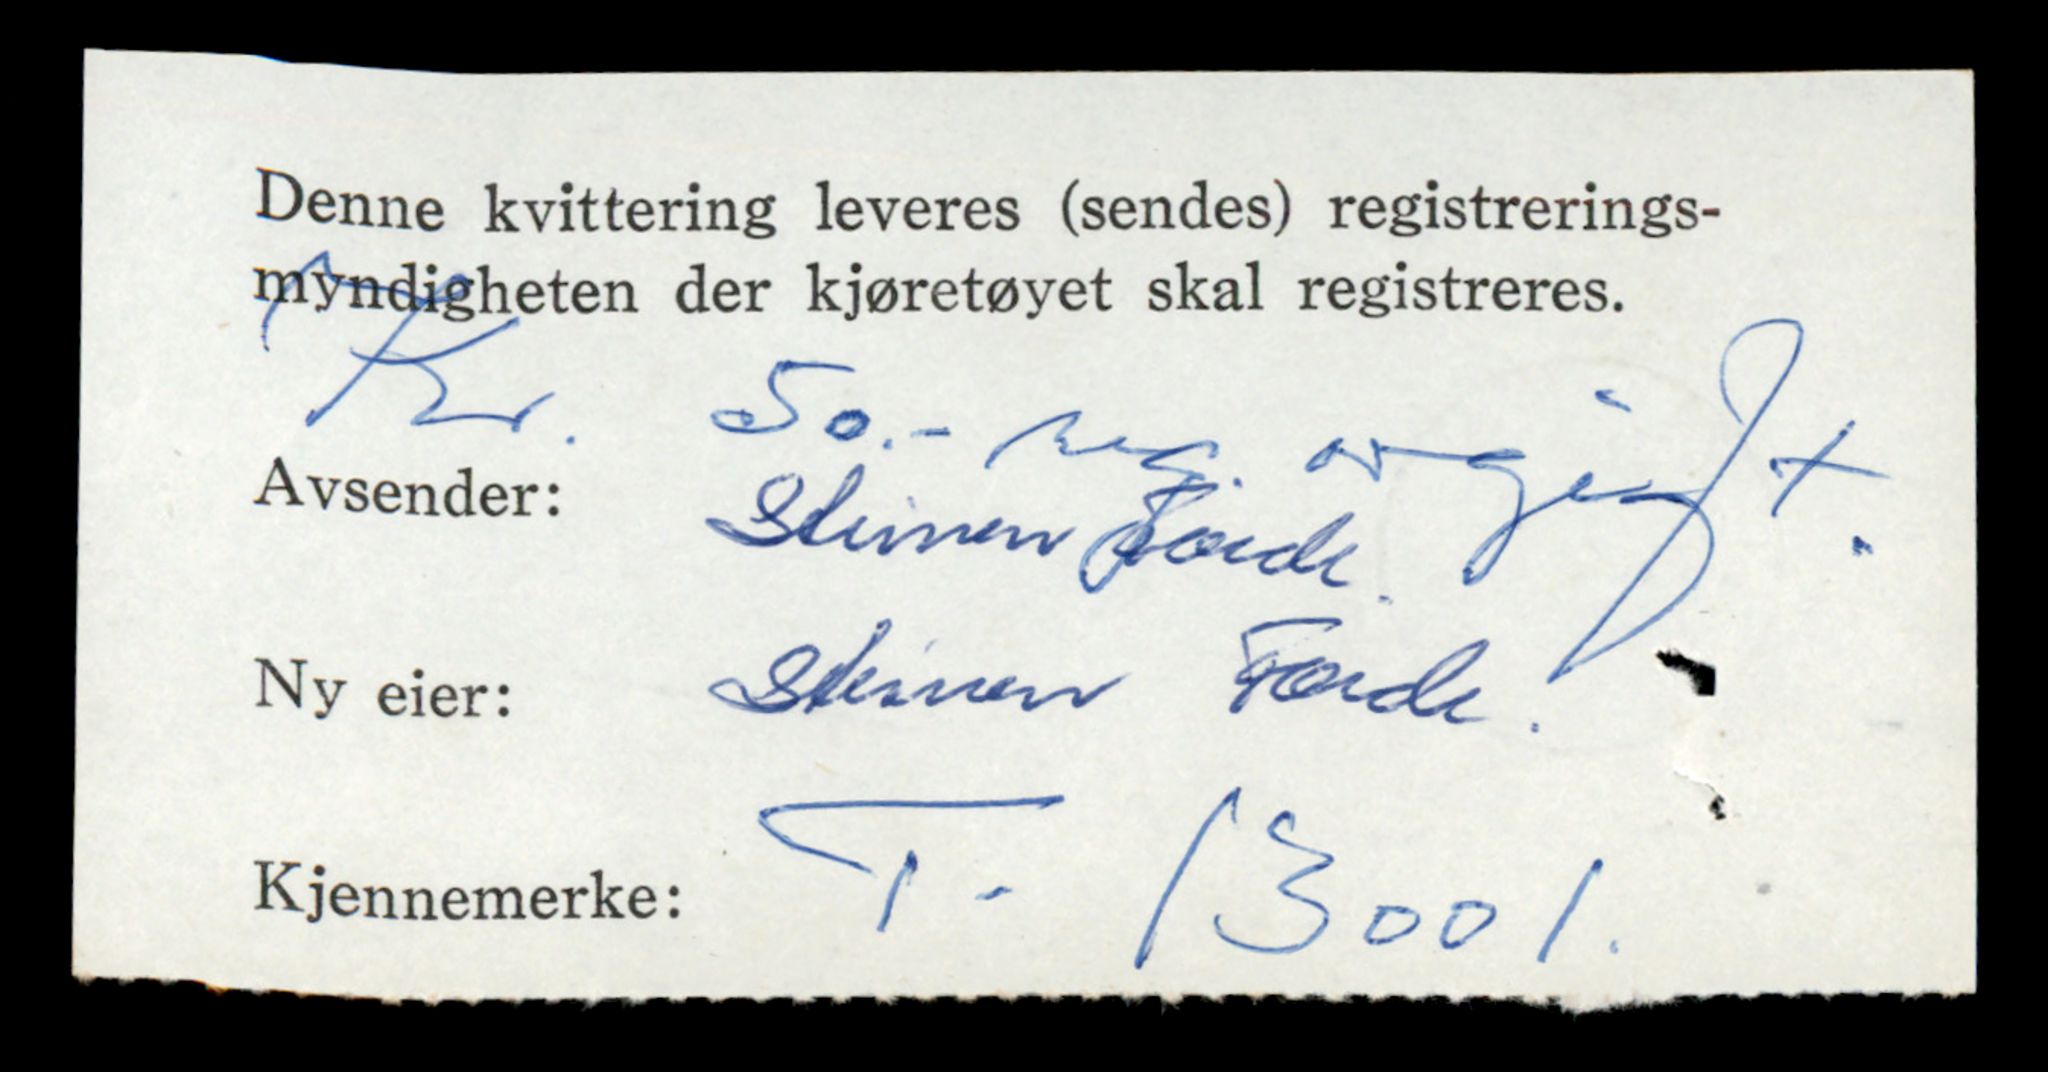 Denne kvittering leveres (sendes) registrerings-
myndigheten der kjøretøyet skal registreres.
Kr. 50.- reg. avgift.
Avsender: Steinar Førde.
Ny eier: Steinar Førde.
Kjennemerke: T- 13001.